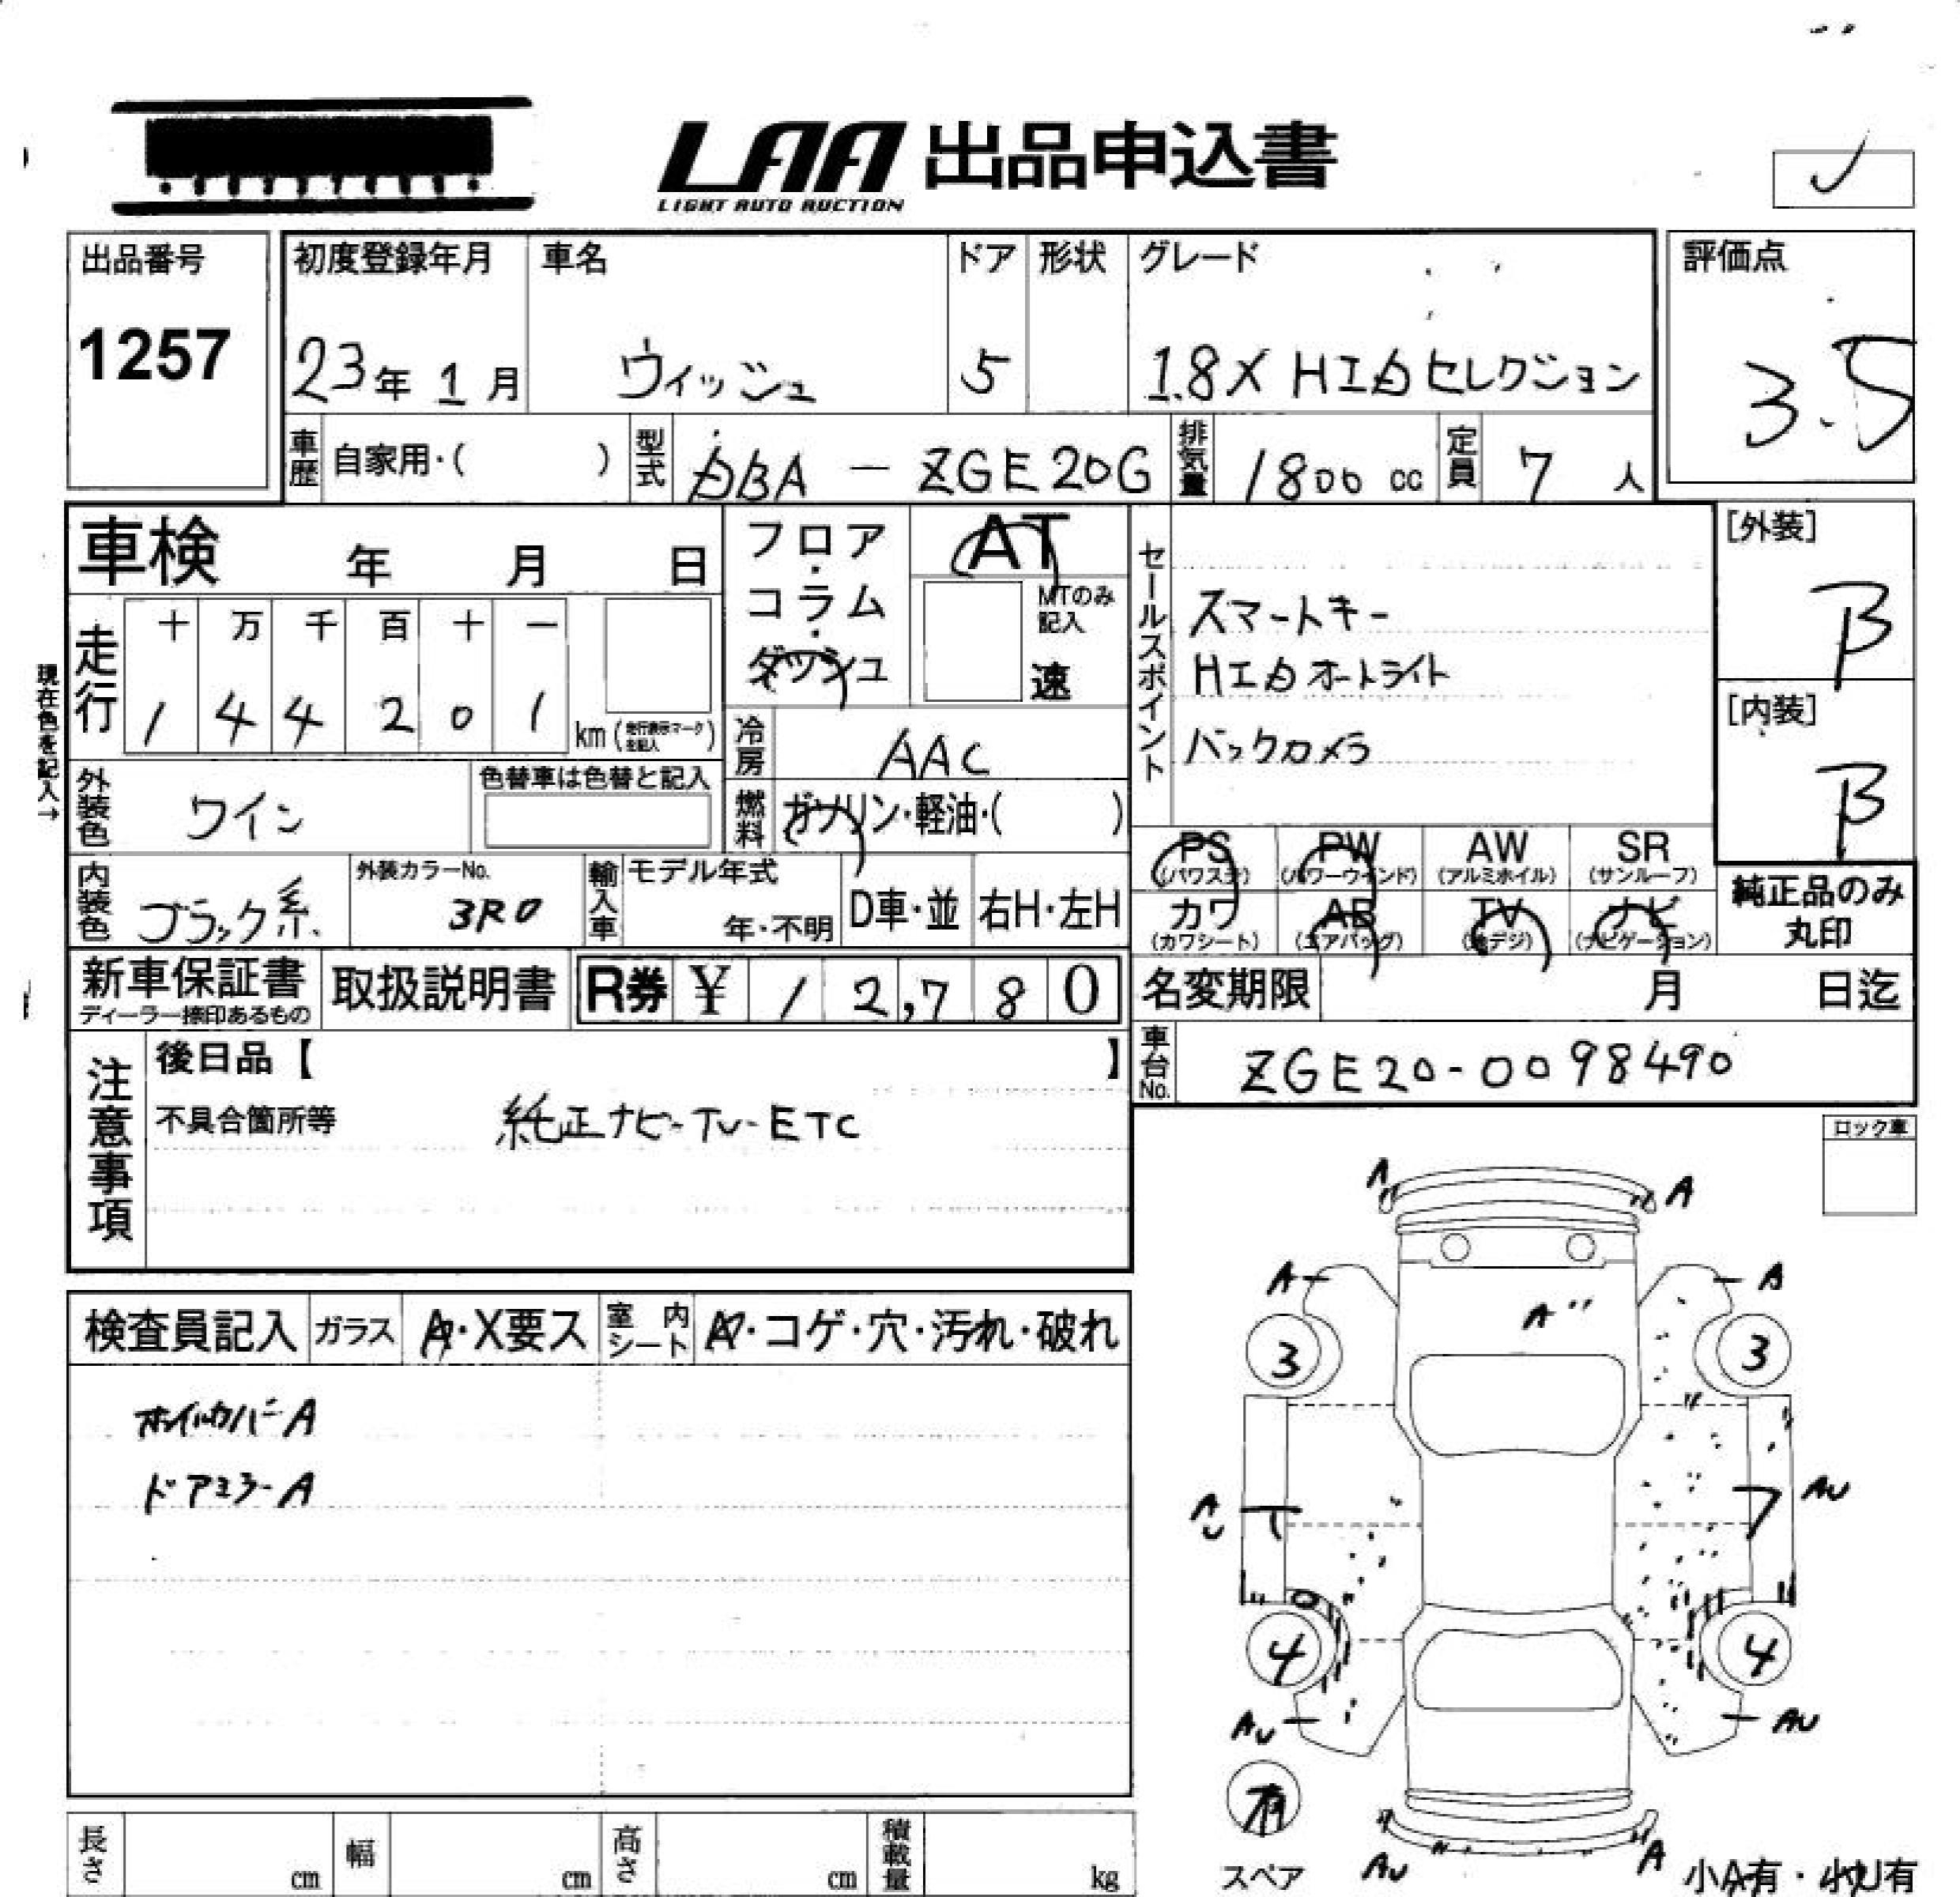 LAA 出品申込書
LIGHT AUTO AUCTION
出品番号
1257
初度登録年月
23年 1月
車名
ウィッシュ
ドア
5
形状
グレード
1.8X HIDセレクション
評価点
3.5
車歴
自家用・( )
型式
DBA - ZGE20G
排気量
1800 cc
定員
7 人
車検 年 月 日
フロア・コラム・ダッシュ
AT
MTのみ記入
速
セールスポイント
スマートキー
HIDオートライト
バックカメラ
[外装]
B
[内装]
B
現在色を記入→
走行
十 万 千 百 十 一
1 4 4 2 0 1
km (走行表示マークを記入)
冷房
AAC
外装色
ワイン
色替車は色替と記入
燃料
ガソリン・軽油・( )
PS (パワステ)
PW (パワーウインド)
AW (アルミホイル)
SR (サンルーフ)
カワ (カワシート)
AB (エアバッグ)
TV (地デジ)
ナビ (ナビゲーション)
純正品のみ丸印
内装色
ブラック系
外装カラーNo.
3R0
輸入車
モデル年式
年・不明
D車・並
右H・左H
新車保証書
ディーラー捺印あるもの
取扱説明書
R券 ¥ 12,780
名変期限 月 日迄
車台No.
ZGE20-0098490
注意事項
後日品【 】
不具合箇所等
純正ナビ-TV-ETC
ロック車
検査員記入
ガラス
A・X要ス
室内シート
A・コゲ・穴・汚れ・破れ
ホイルカバーA
ドアミラーA
A A
A A
A
3 3
AU AU
4 4
AU AU
有
スペア
AU A
小A有・小U有
長さ cm
幅 cm
高さ cm
積載量 kg